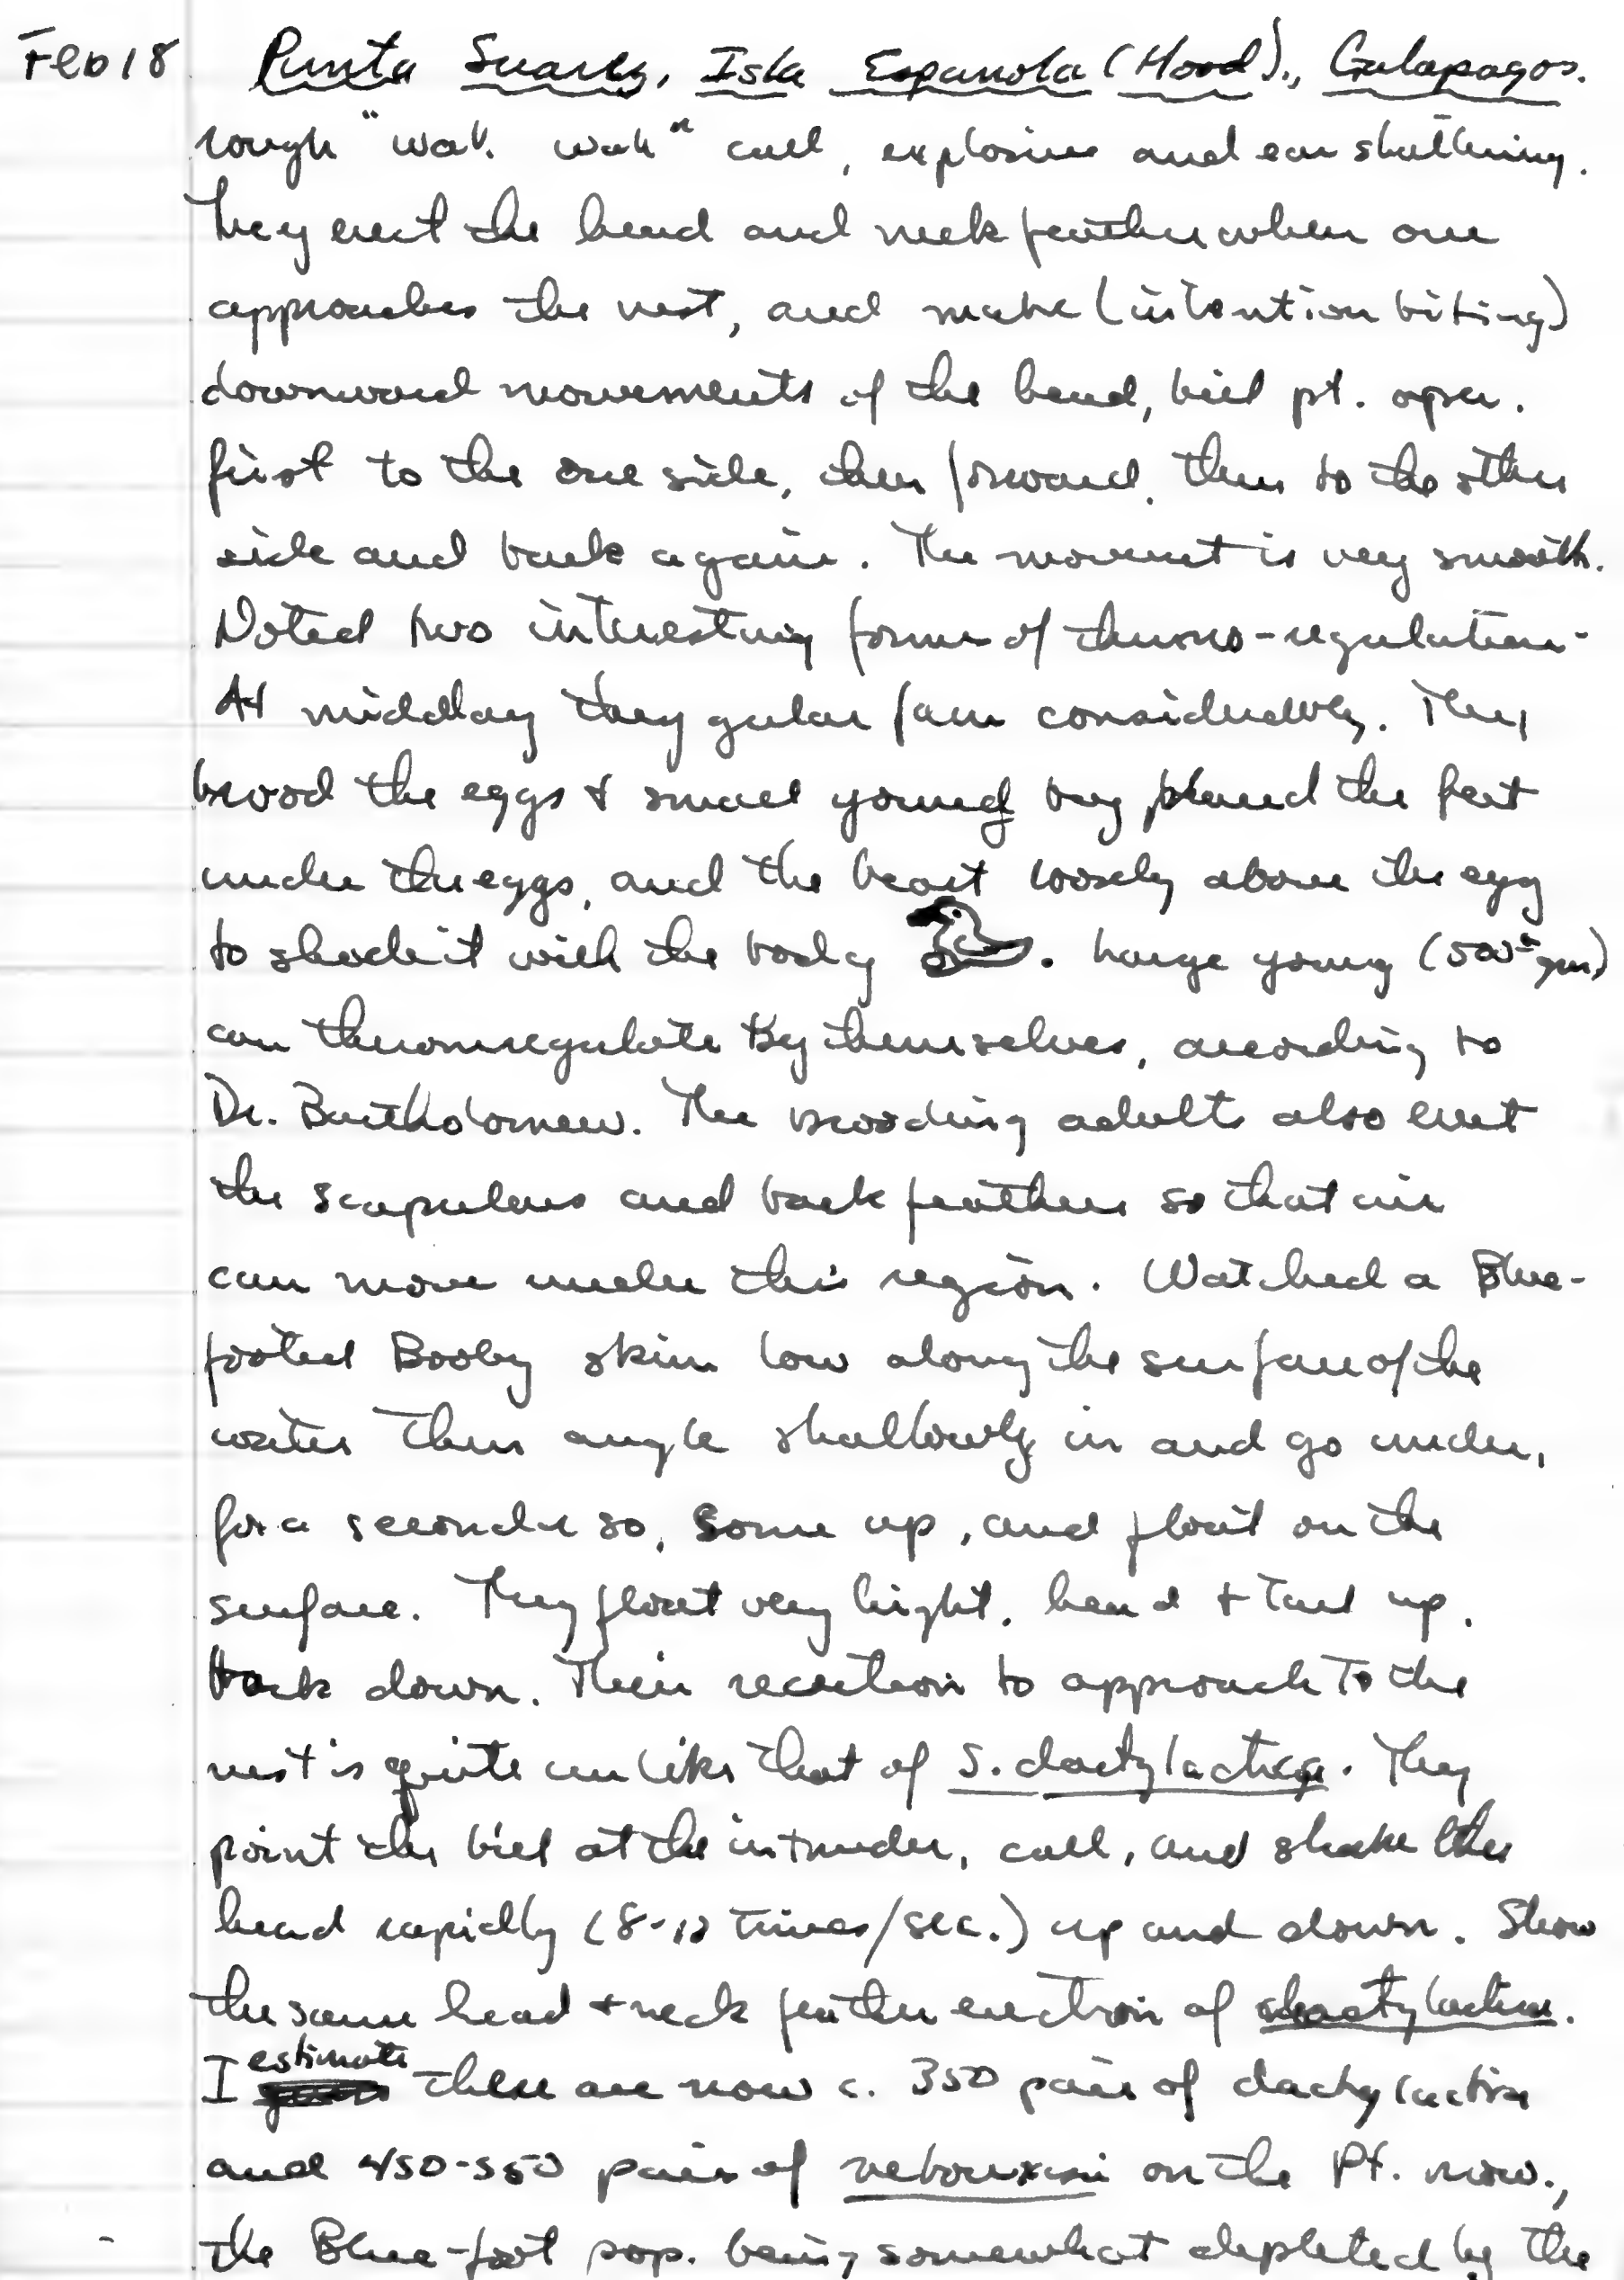 Feb 18 Punta Suarez, Isla Espanola (Hood)., Galapagos.
rough "wak. wak" call, explosive and ear shattering.
They erect the head and neck feather when one
approaches the nest, and make (intention biting)
downward movements of the head, bill pt. open.
first to the one side, then forward, then to the other
side and back again. The movement is very smooth.
Noted two interesting forms of thermo-regulation-
At middday they gular fan considerably. They
brood the eggs & small young by placed the feet
under the eggs, and the breast loosely above the egg
to shade it with the body . Large young (500± gm)
can thermoregulate by themselves, according to
Dr. Bartholomew. The brooding adults also erect
the scapulars and back feathers so that air
can move under this region. Watched a Blue-
footed Booby skim low along the surface of the
water then angle shallowly in and go under,
for a second or so, come up, and float on the
surface. They float very hight, head + tail up.
back down. Their reaction to approach to the
nest is quite unlike that of S. dactylactra. They
point the bill at the intruder, call, and shake the
head rapidly (8-12 times/sec.) up and down. Show
the same head + neck feather erection of dactylactra.
I estimate there are now c. 350 pair of dactylactra
and 450-550 pair of nebouxii on the Pt. now.,
the Blue-foot pop. being somewhat depleted by the